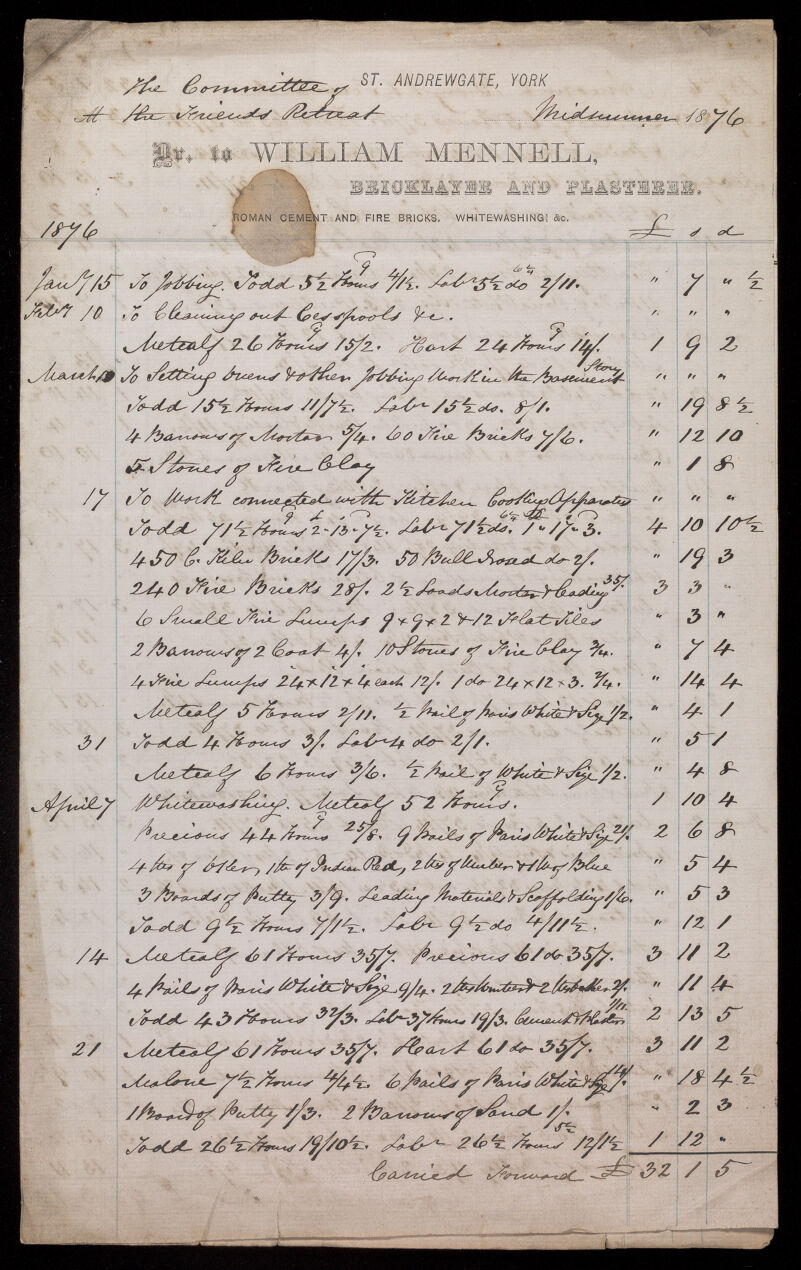 ST. ANDREWGATE, YORK
The Committee of
At the Friends Retreat Midsummer 1876
Dr. to WILLIAM MENNELL,
BRICKLAYER AND PLASTERER.
ROMAN CEMENT AND FIRE BRICKS. WHITEWASHING! &c.
1876 £ s d
Jany 15 To Jobbing. Todd 5½ Hours 4/1½. Labr 5½ do 2/11. " 7 " ½
Feby 10 To Cleaning out Cesspools &c. " " "
Metcalf 26 Hours 15/2. Hart 24 Hours 14/. 1 9 2
March 10 To Setting ovens & other Jobbing Work in the Basement Story " " "
Todd 15½ Hours 11/7½. Labr 15½ do. 8/1. " 19 8½
4 Barrows of Mortar 5/4. 60 Fire Bricks 7/6. " 12 10
5 Stones of Fire Clay " 1 8
17 To Work connected with Kitchen Cooking Apparatus " " "
Todd 71½ Hours 2-13-7½. Labr 71½ do. 1"17"3. 4 10 10½
450 C. Kiln Bricks 17/3. 50 Bull Nosed do 2/. " 19 3
240 Fire Bricks 28/. 2½ Loads Mortar & leading 35/. 3 3 "
6 Small Fire Lumps 9x9x2 & 12 Flat Tiles " 3 "
2 Barrows of 2 Coat 4/. 10 Stones of Fire Clay 3/4. " 7 4
4 Fire Lumps 24x12x4 each 12/. 1 do 24x12x3. 2/4. " 14 4
Metcalf 5 Hours 2/11. ½ Pail of Paris White & Size 1/2. " 4 1
31 Todd 4 Hours 3/. Labr 4 do 2/1. " 5 1
Metcalf 6 Hours 3/6. ½ Pail of White & Size 1/2. " 4 8
April 7 Whitewashing. Metcalf 52 Hours. 1 10 4
Precious 44 Hours 25/8. 9 Pails of Paris White & Size 21/. 2 6 8
4 lbs of 1 lb of Indian Red, 2 lbs of Umber & of Blue " 5 4
3 Boards of Putty 3/9. Leading Materials & Scaffolding 1/6. " 5 3
Todd 9½ Hours 7/1½. Labr 9½ do 4/11½. " 12 1
14 Metcalf 61 Hours 35/7. Precious 61 do 35/7. 3 11 2
4 Pails of Paris White & Size 9/4. 2 lbs Umber & 2 lbs 2/. " 11 4
Todd 43 Hours 32/3. Labr 37 Hours 19/3. Cement & Plaster 1/11 2 13 5
21 Metcalf 61 Hours 35/7. Hart 61 do 35/7. 3 11 2
Malone 7½ Hours 4/4½. 6 Pails of Paris White & Size 14/. " 18 4½
1 Board of Putty 1/3. 2 Barrows of Sand 1/. " 2 3
Todd 26½ Hours 19/10½. Labr 26½ Hours 12/1½ 1 12 "
Carried Forward £ 32 1 5